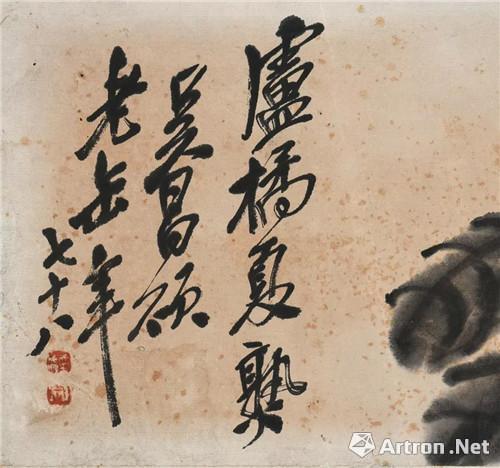 盧橘夏熟
吴昌碩
老缶年
七十八
Artron.Net